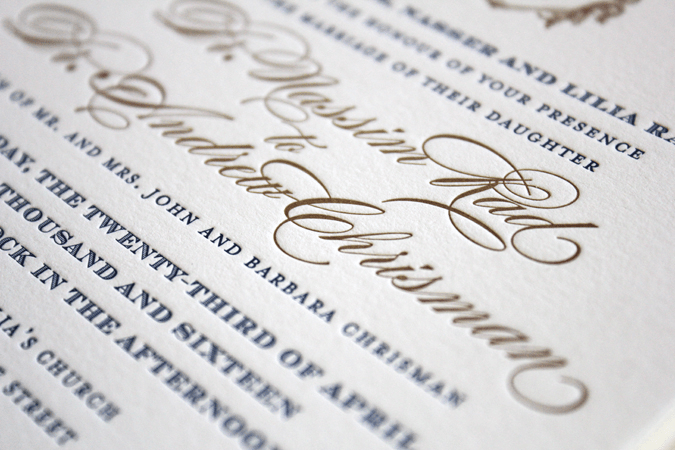 NASSER AND LILIA RA
THE HONOUR OF YOUR PRESENCE
MARRIAGE OF THEIR DAUGHTER
Dr. Nassim Rad
to
Dr. Andrew Chrisman
OF MR. AND MRS. JOHN AND BARBARA CHRISMAN
DAY, THE TWENTY-THIRD OF APRIL
THOUSAND AND SIXTEEN
OCK IN THE AFTERNOON
IA'S CHURCH
STREET